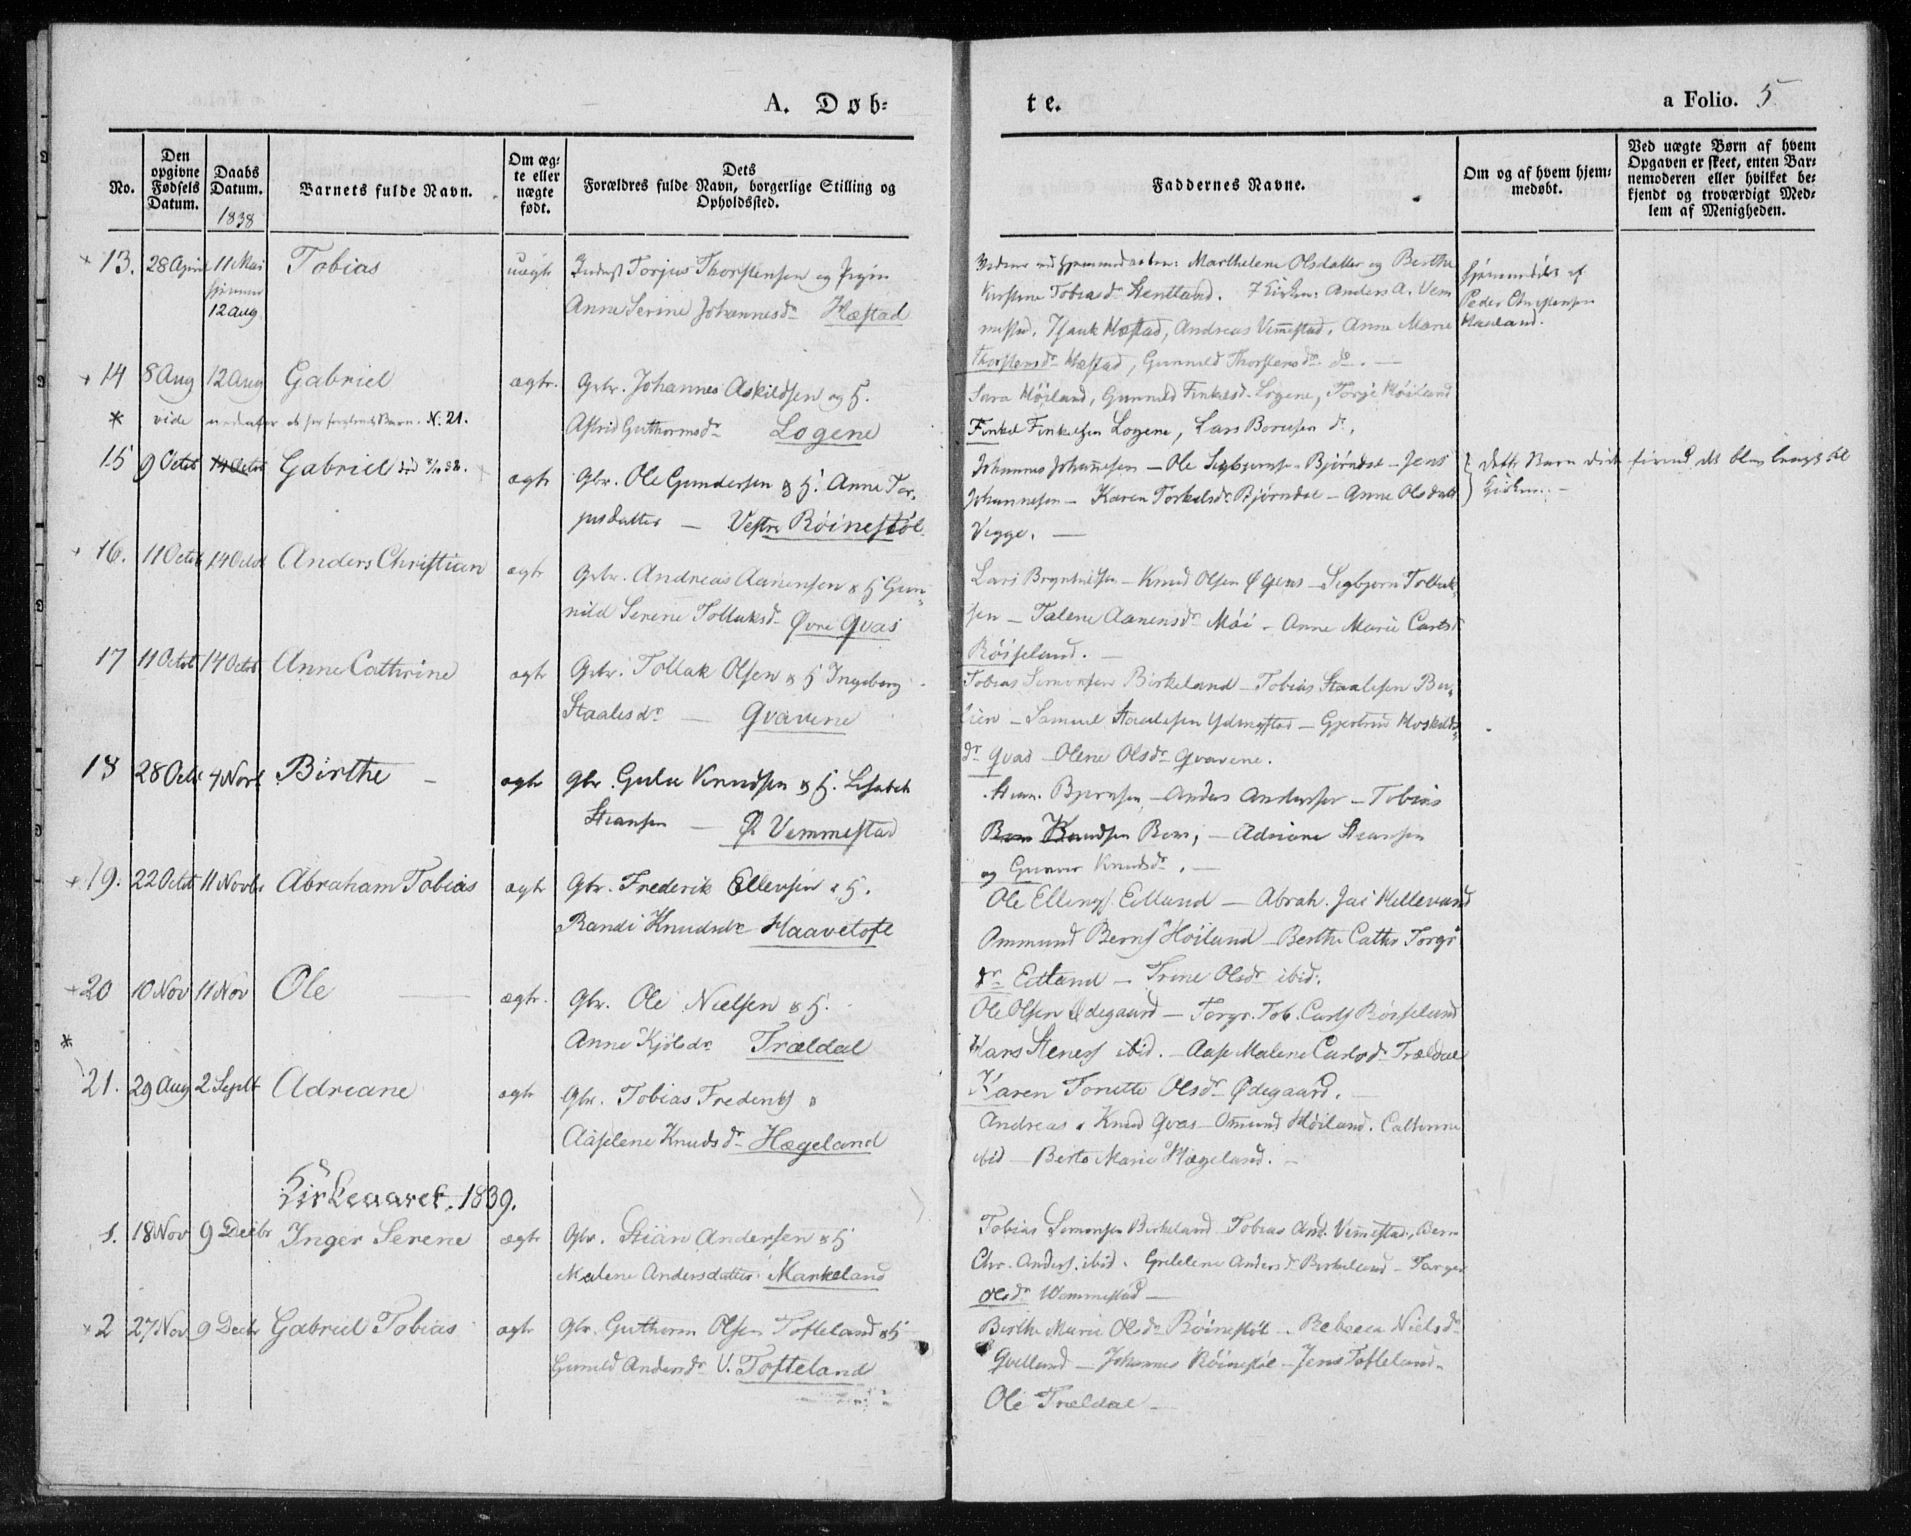 A. Døb=
te.
a Folio. 5
No.
Den opgivne Fødsels Datum.
Daabs Datum. 1838
Barnets fulde Navn.
Om ægte eller uægte født.
Dets Forældres fulde Navn, borgerlige Stilling og Opholdssted.
Faddernes Navne.
Om og af hvem hjemmedøbt.
Ved uægte Børn af hvem Opgaven er skeet, enten Barnemoderen eller hvilket bekjendt og troværdigt Medlem af Menigheden.
13. 28 April 11 Mai Tobias uægte Torjus Thorstensen og Pigen
12 Aug
Anne Serine Johannesdr Hæstad
Marthelene Olsdatter og Berthe
Kirstine Tobiasdr Stentland. Anders A. Vem
mestad, Isaak Hæstad, Andreas Vemestad, Anne Marie
Thorstensdr Hæstad, Gunnild Thorstensdr do. —
Hjemmedøbt af
Peder Christensen
Hauland.
14 8 Aug 12 Aug Gabriel ægte. Gbr. Johannes Askildsen og H.
* vide nedenfor N. 21.
Astrid Guthormsdr Logene
Sara Høiland, Gunnild Finkelsd. Logene, Torge Høiland
Finkel Finkelsen Logene, Lars Borusen dr.
15 9 Octob 14 Octob Gabriel død ægte Gbr. Ole Gundersen & H. Anne Tor-
jusdatter — Vestre Röinestöl
Johannes Johannesen — Ole Sigbjørnse Bjørndal — Jens
Johannesen — Karen Torkelsdr Bjørndal — Anne Olsdatt
Vegge. —
Dette Barn døde førend det blev bragt til
Kirken. —
16. 11 Octob 14 Octob Anders Christian ægte Gbr. Andreas Aanensen & H Gun-
nild Serene Tollaksd. Øvre Qvas
Lars Bryntelsen — Knud Olsen Øgens — Sigbjørn Tollak
sen — Talene Aanensdr Møi — Anne Marie Carlsd
Röisseland. —
17 11 Octob 14 Octob Anne Cathrine ægte Gbr. Tollak Olsen & H Ingeborg
Staalesdr — Qvavene
Tobias Simonsen Birkeland — Tobias Staalesen
— Samuel Staalesen — Gjertrud
dr Qvas — Olene Olsdr Qvavene.
18 28 Octb 4 Novb Birthe — ægte Gbr. Gulu Knudsen & H. Lisabeth
Steansen — Ø Vemmestad
Stean. Bjørnsen — Anders Andersen — Tobias
Knudsen — Adriane Steansen
og Gunvor Knudsdr. —
19. 22 Octob 11 Novbr Abraham Tobias ægte Gbr. Frederik Ellevsen & H.
Randi Knudsdr Haavetoft
Ole Ellings. Eilland — Abrah. Jac Hellevand
Ommund Berns Höiland — Berthe Cathr Torgr
dr Eitland — Trine Olsdr ibid.
20 10 Nov 11 Nov Ole — ægte. Gbr. Ole Nielsen & H.
Anne Kjölsdr Trældal
Ole Olsen Ödegaard — Torgr. Tob. Carls Röisseland
Hans Stenes ibid. — Aase Malene Carlsdr Trældal
Karen Tonette Olsdr Ødegaard. —
*
21. 29 Aug 2 Septb Adriane ægte Gbr. Tobias Frederiks &
Aaselene Knudsdr Hægeland
Andreas & Knud Qvas — Omund Höiland. Cathrine
ibid — Berte Marie Hægeland. —
Kirkeaaret. 1839.
1. 18 Nov 9 Decbr Inger Serene ægte Gbr. Stian Andersen & H
Malene Andersdatter Markeland
Tobias Simonsen Birkeland Tobias And. Vemestad, Bern
Chr. Anders. ibid. Grelelene Andersdr Birkeland — Targer
Olsdr Wemmestad —
2 27 Nov 9 Decbr Gabriel Tobias ægte Gbr. Guthorm Olsen Tofteland & H
Gunild Andersdr V. Tofteland
Birthe Marie Olsdr Röinestöl — Rebecca Nielsdr
Qvelland — Johannes Röinestöl — Jens Tofteland
Ole Trældal —